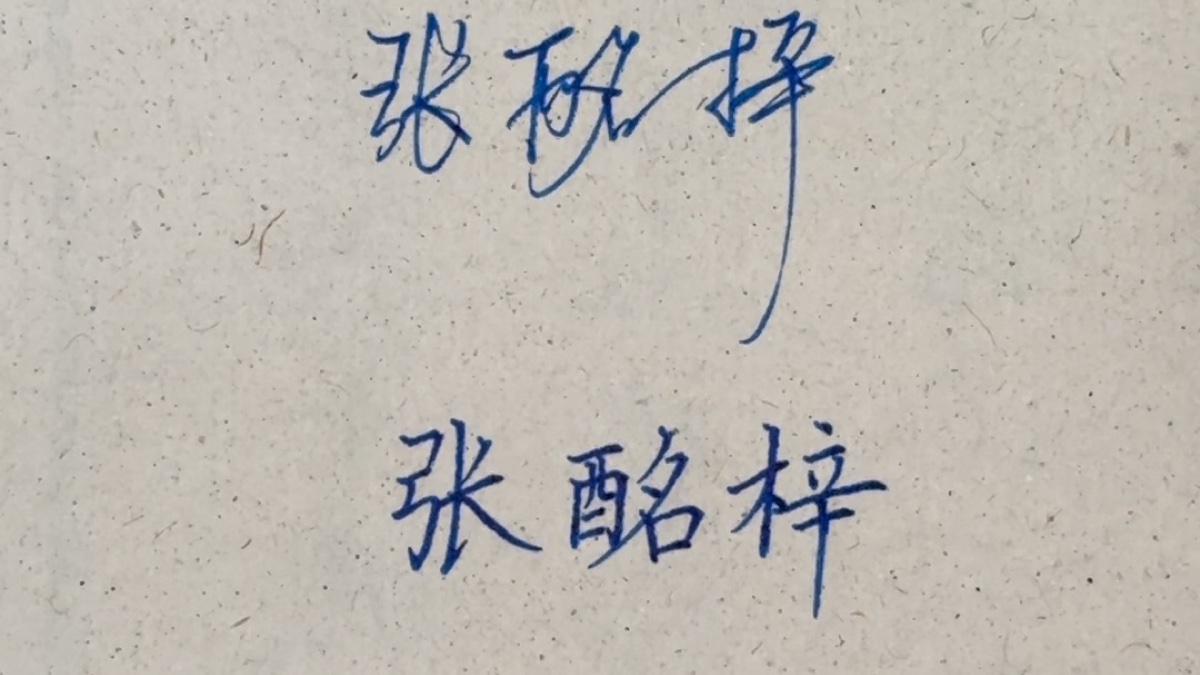 张酩梓
张酩梓